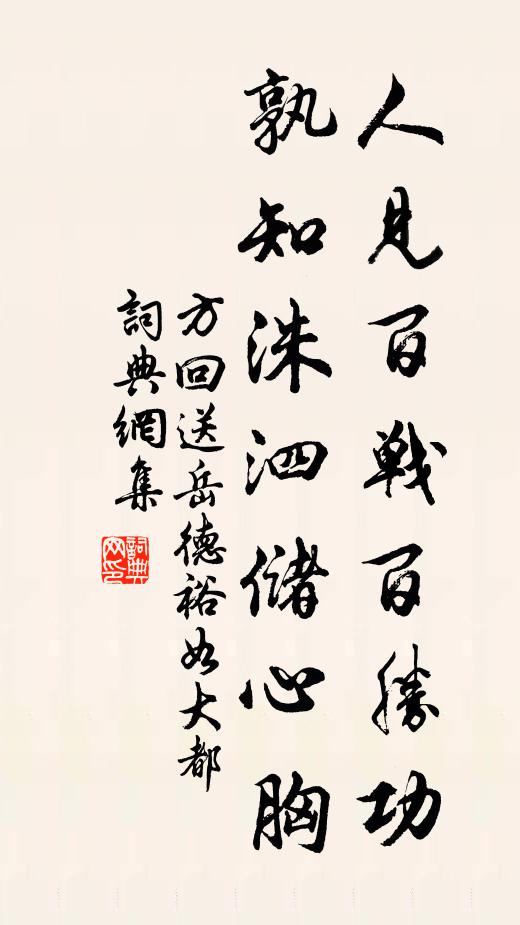 人見百戰百勝功
孰知洙泗儲心胸
方回送岳德裕如大都
詞典網集
詞典網印